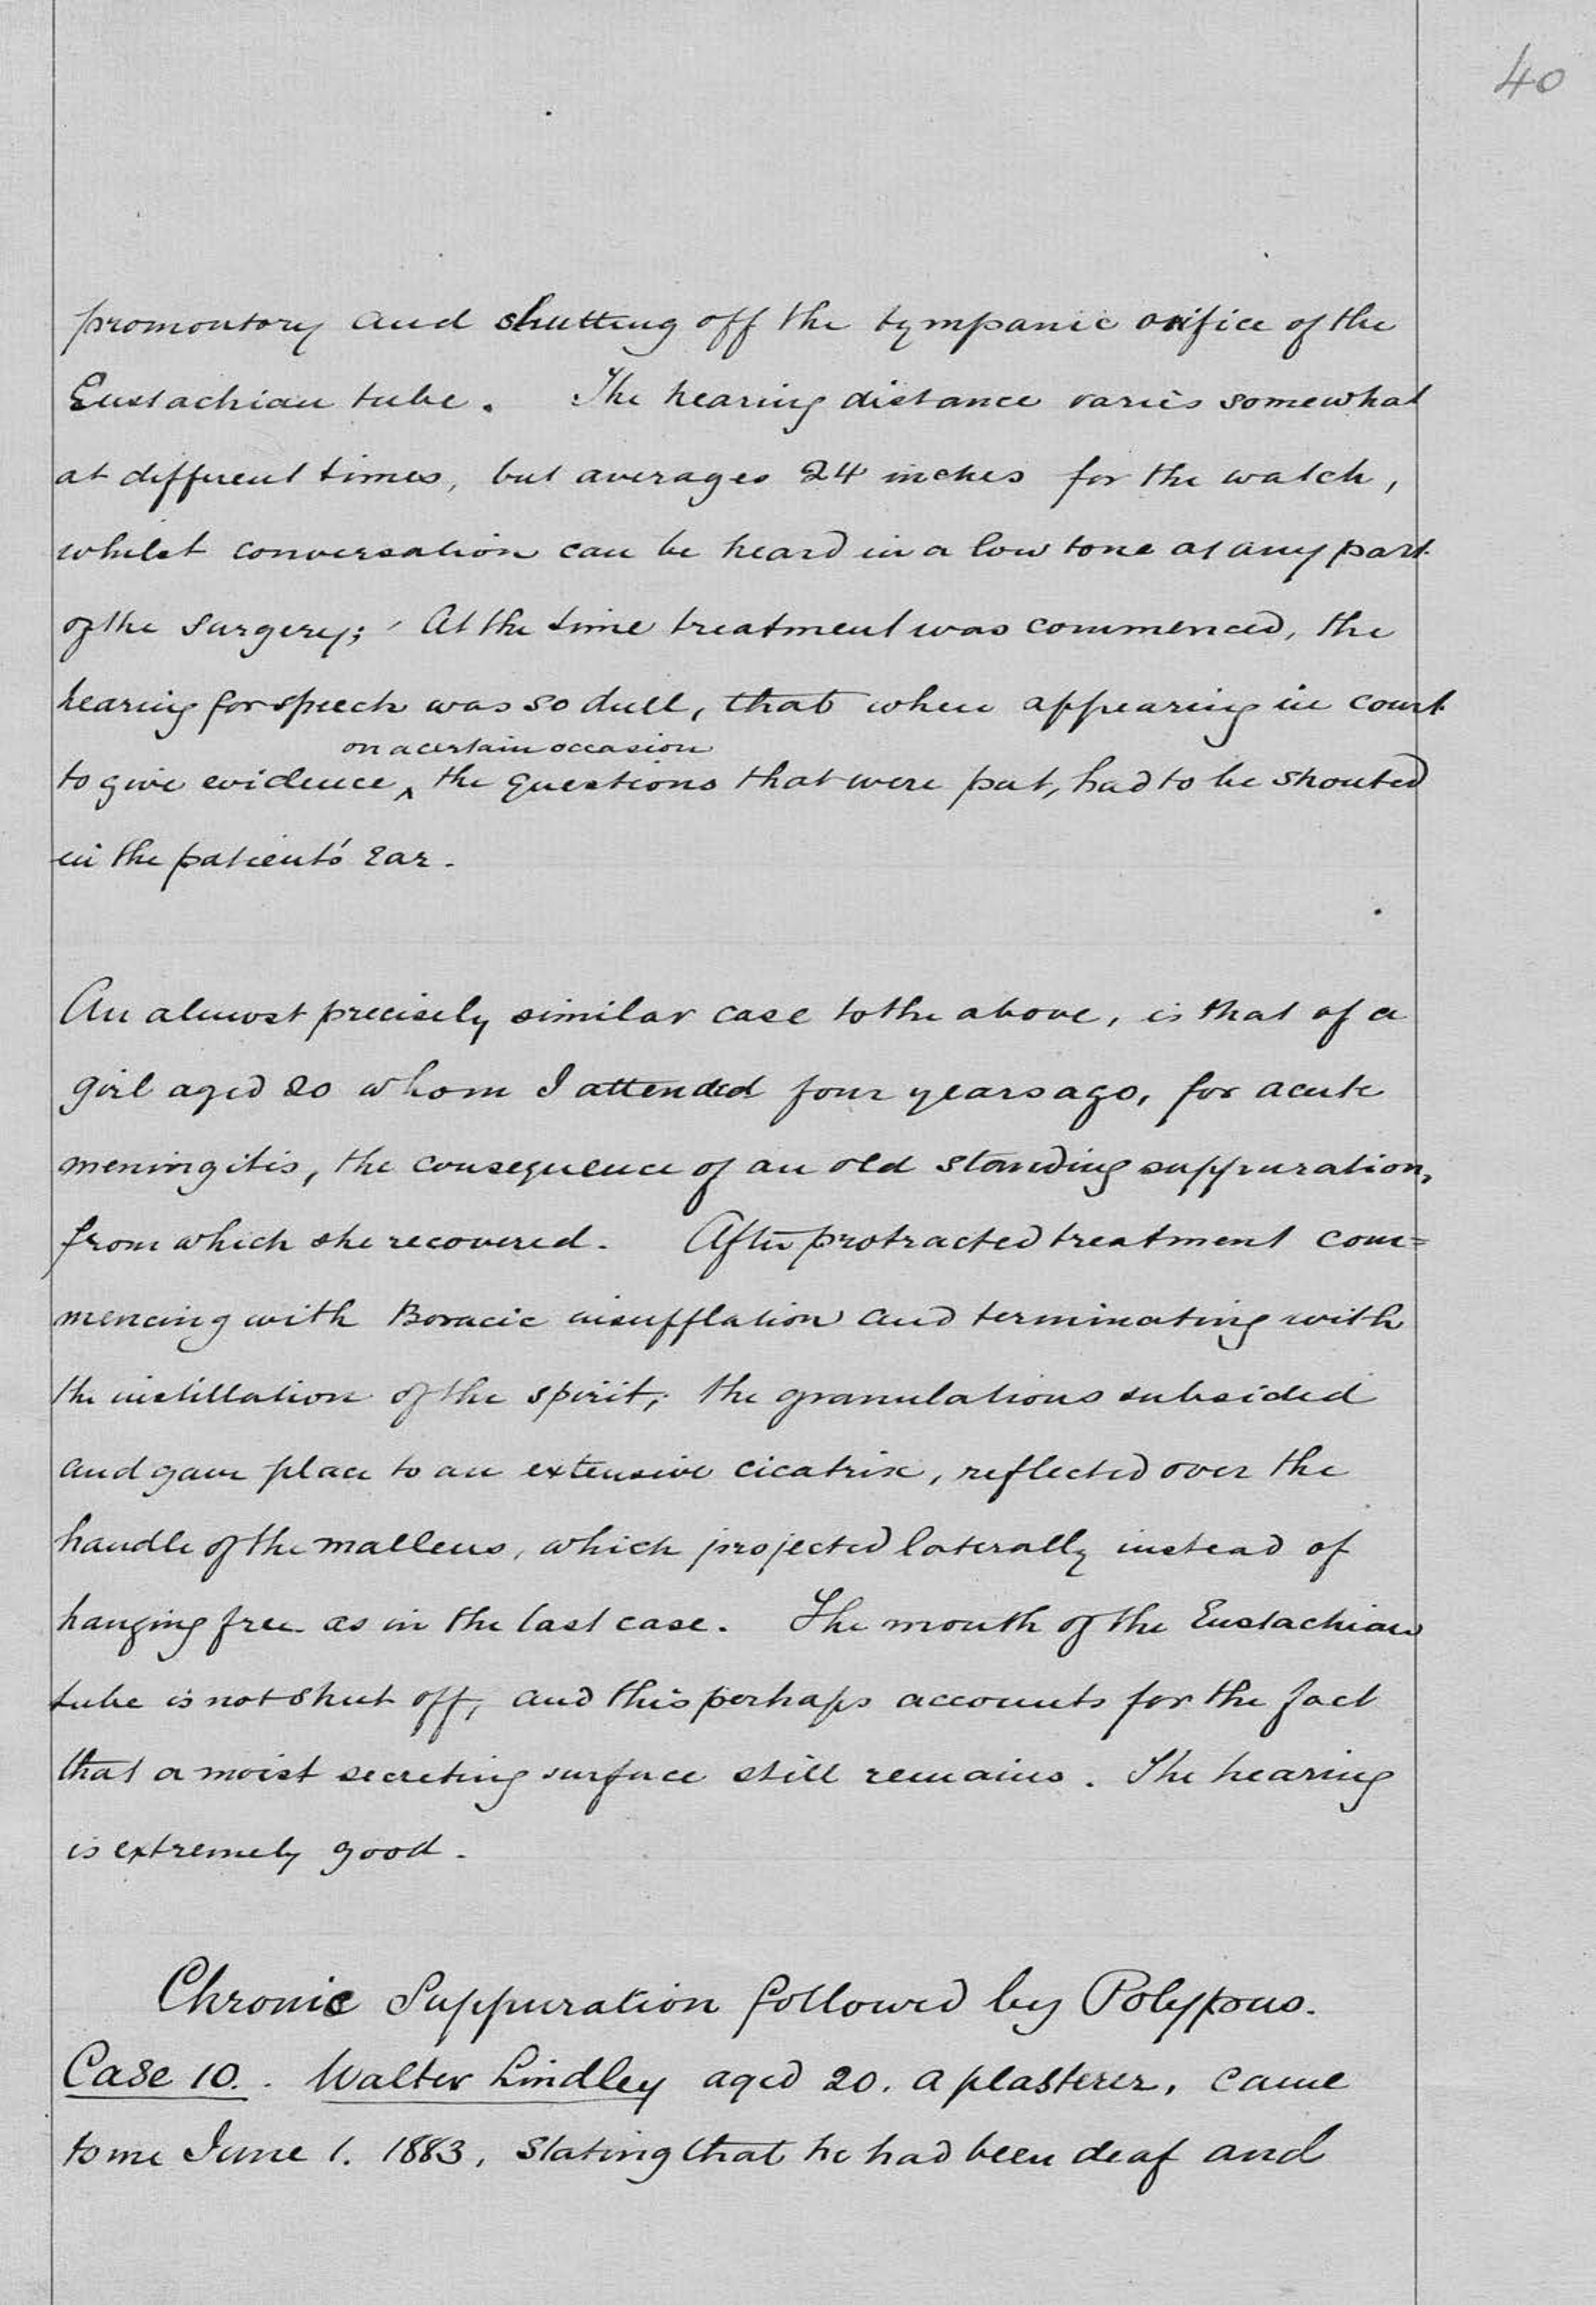 40
promontory and shutting off the tympanic orifice of the
Eustachian tube. The hearing distance varies somewhat
at different times, but averages 24 inches for the watch,
whilst conversation can be heard in a low tone at any part
of the surgery; At the time treatment was commenced, the
hearing for speech was so dull, that when appearing in court
on a certain occasion
to give evidence ‸ the questions that were put, had to be shouted
in the patient's ear.
An almost precisely similar case to the above, is that of a
girl aged 20 whom I attended four years ago, for acute
meningitis, the consequence of an old standing suppuration,
from which she recovered. After protracted treatment com=
mencing with Boracic insufflation and terminating with
the instillation of the spirit; the granulations subsided
and gave place to an extensive cicatrix, reflected over the
handle of the malleus, which projected laterally instead of
hanging free as in the last case. The mouth of the Eustachian
tube is not shut off, and this perhaps accounts for the fact
that a moist secreting surface still remains. The hearing
is extremely good.
Chronic Suppuration followed by Polypous.
Case 10. Walter Lindley aged 20. a plasterer, came
to me June 1. 1883, stating that he had been deaf and